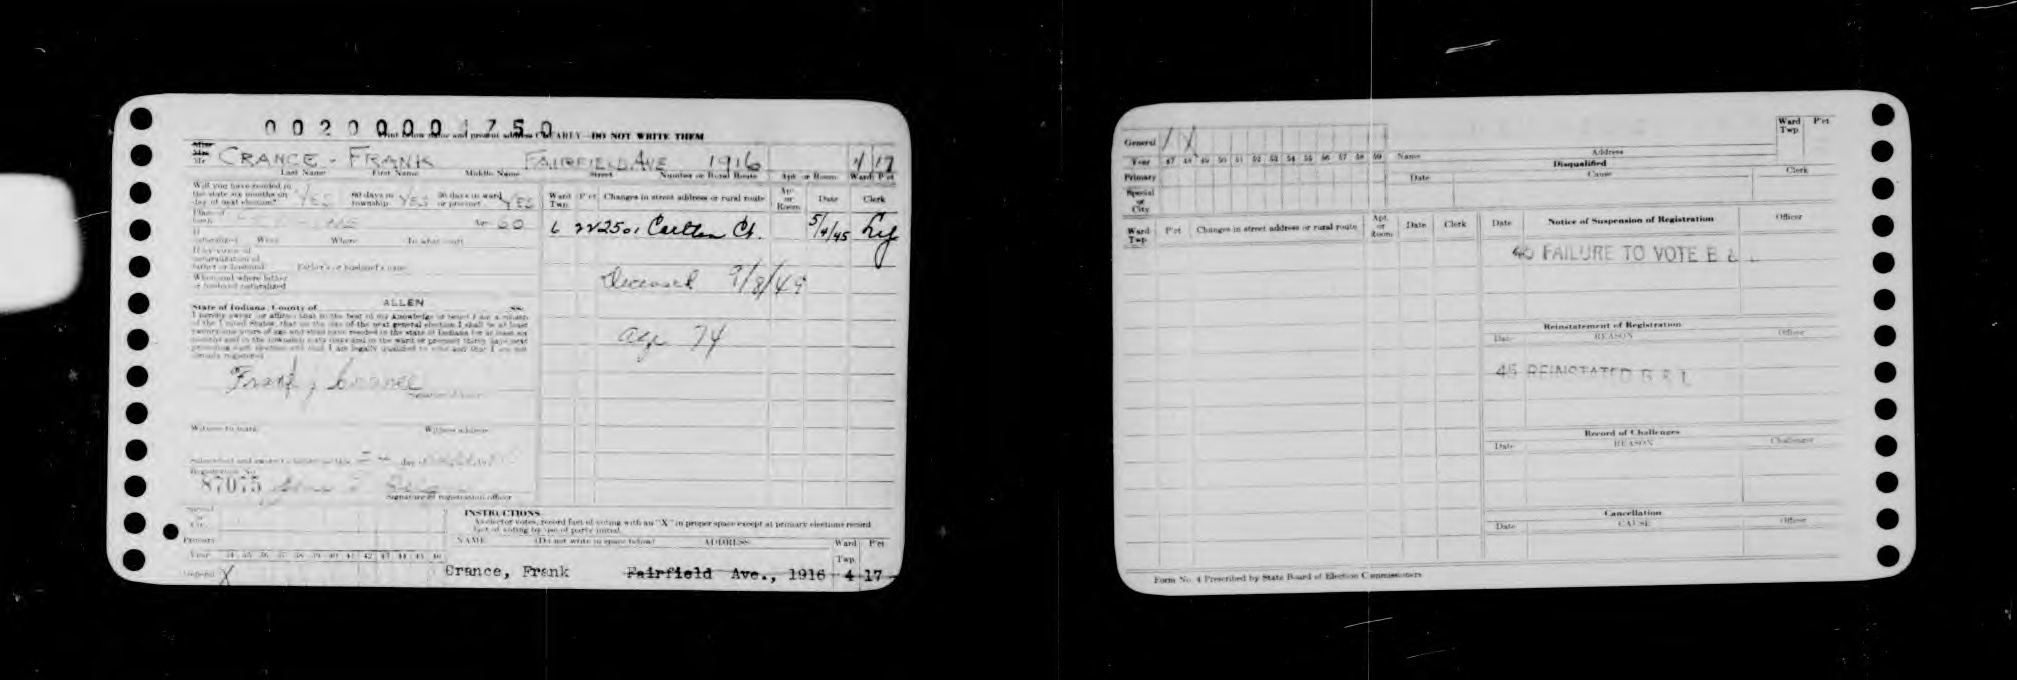 0020000 1750
CLEARLY—DO NOT WRITE THEM
Miss
Mrs
Mr CRANCE - FRANK FAIRFIELD AVE 1916 4 17
Last Name First Name Middle Name Street Number or Rural Route Apt. or Room Ward P'ct
Will you have resided in
the state six months on
day of next election? YES 60 days in
township YES 30 days in ward
or precinct YES
Ward
Twp. P'ct Changes in street address or rural route Apt.
or
Room Date Clerk
Place of
birth Age 60
6 22 2501 Carlton Ct. 5/4/45
If
naturalized When Where To what court
If by virtue of
naturalization of
father or husband Father's or husband's name
When and where father
or husband naturalized
Deceased 9/8/49
State of Indiana, County of ALLEN SS:
I hereby swear or affirm that to the best of my knowledge or belief I am a citizen
of the United States, that on the day of the next general election I shall be at least
twenty-one years of age and shall have resided in the state of Indiana for at least six
months and in the township sixty days and in the ward or precinct thirty days next
preceding such election and that I am legally qualified to vote and that I am not
already registered
age 74
Frank J Crance
Witness to mark Witness address
Subscribed and sworn to before me this day of
Registration No.
87075
Signature of registration officer
INSTRUCTIONS
As elector votes, record fact of voting with an "X" in proper space except at primary elections record
fact of voting by use of party initial.
Special
or
City
Primary
NAME (Do not write in space below) ADDRESS Ward
Twp. P'ct
Year 34 35 36 37 38 39 40 41 42 43 44 45 46
General X
Crance, Frank Fairfield Ave., 1916 4 17
General / X
Year 47 48 49 50 51 52 53 54 55 56 57 58 59
Primary
Special
or
City
Name Address Ward
Twp. P'ct
Disqualified
Date Cause Clerk
Ward
Twp. P'ct Changes in street address or rural route Apt.
or
Room Date Clerk
Date Notice of Suspension of Registration Officer
FAILURE TO VOTE B & L
Reinstatement of Registration
Date REASON Officer
45 REINSTATED B & L
Record of Challenges
Date REASON Challenger
Cancellation
Date CAUSE Officer
Form No. 4 Prescribed by State Board of Election Commissioners